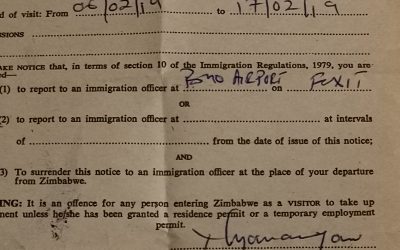 d of visit: From 06/02/19 to 17/02/19
SIONS
AKE NOTICE that, in terms of section 10 of the Immigration Regulations, 1979, you are
ed—
(1) to report to an immigration officer at AIRPORT on EXIT
OR
(2) to report to an immigration officer at at intervals
of from the date of issue of this notice;
AND
3) To surrender this notice to an immigration officer at the place of your departure
from Zimbabwe.
NING: It is an offence for any person entering Zimbabwe as a VISITOR to take up
ment unless he/she has been granted a residence permit or a temporary employment
permit.